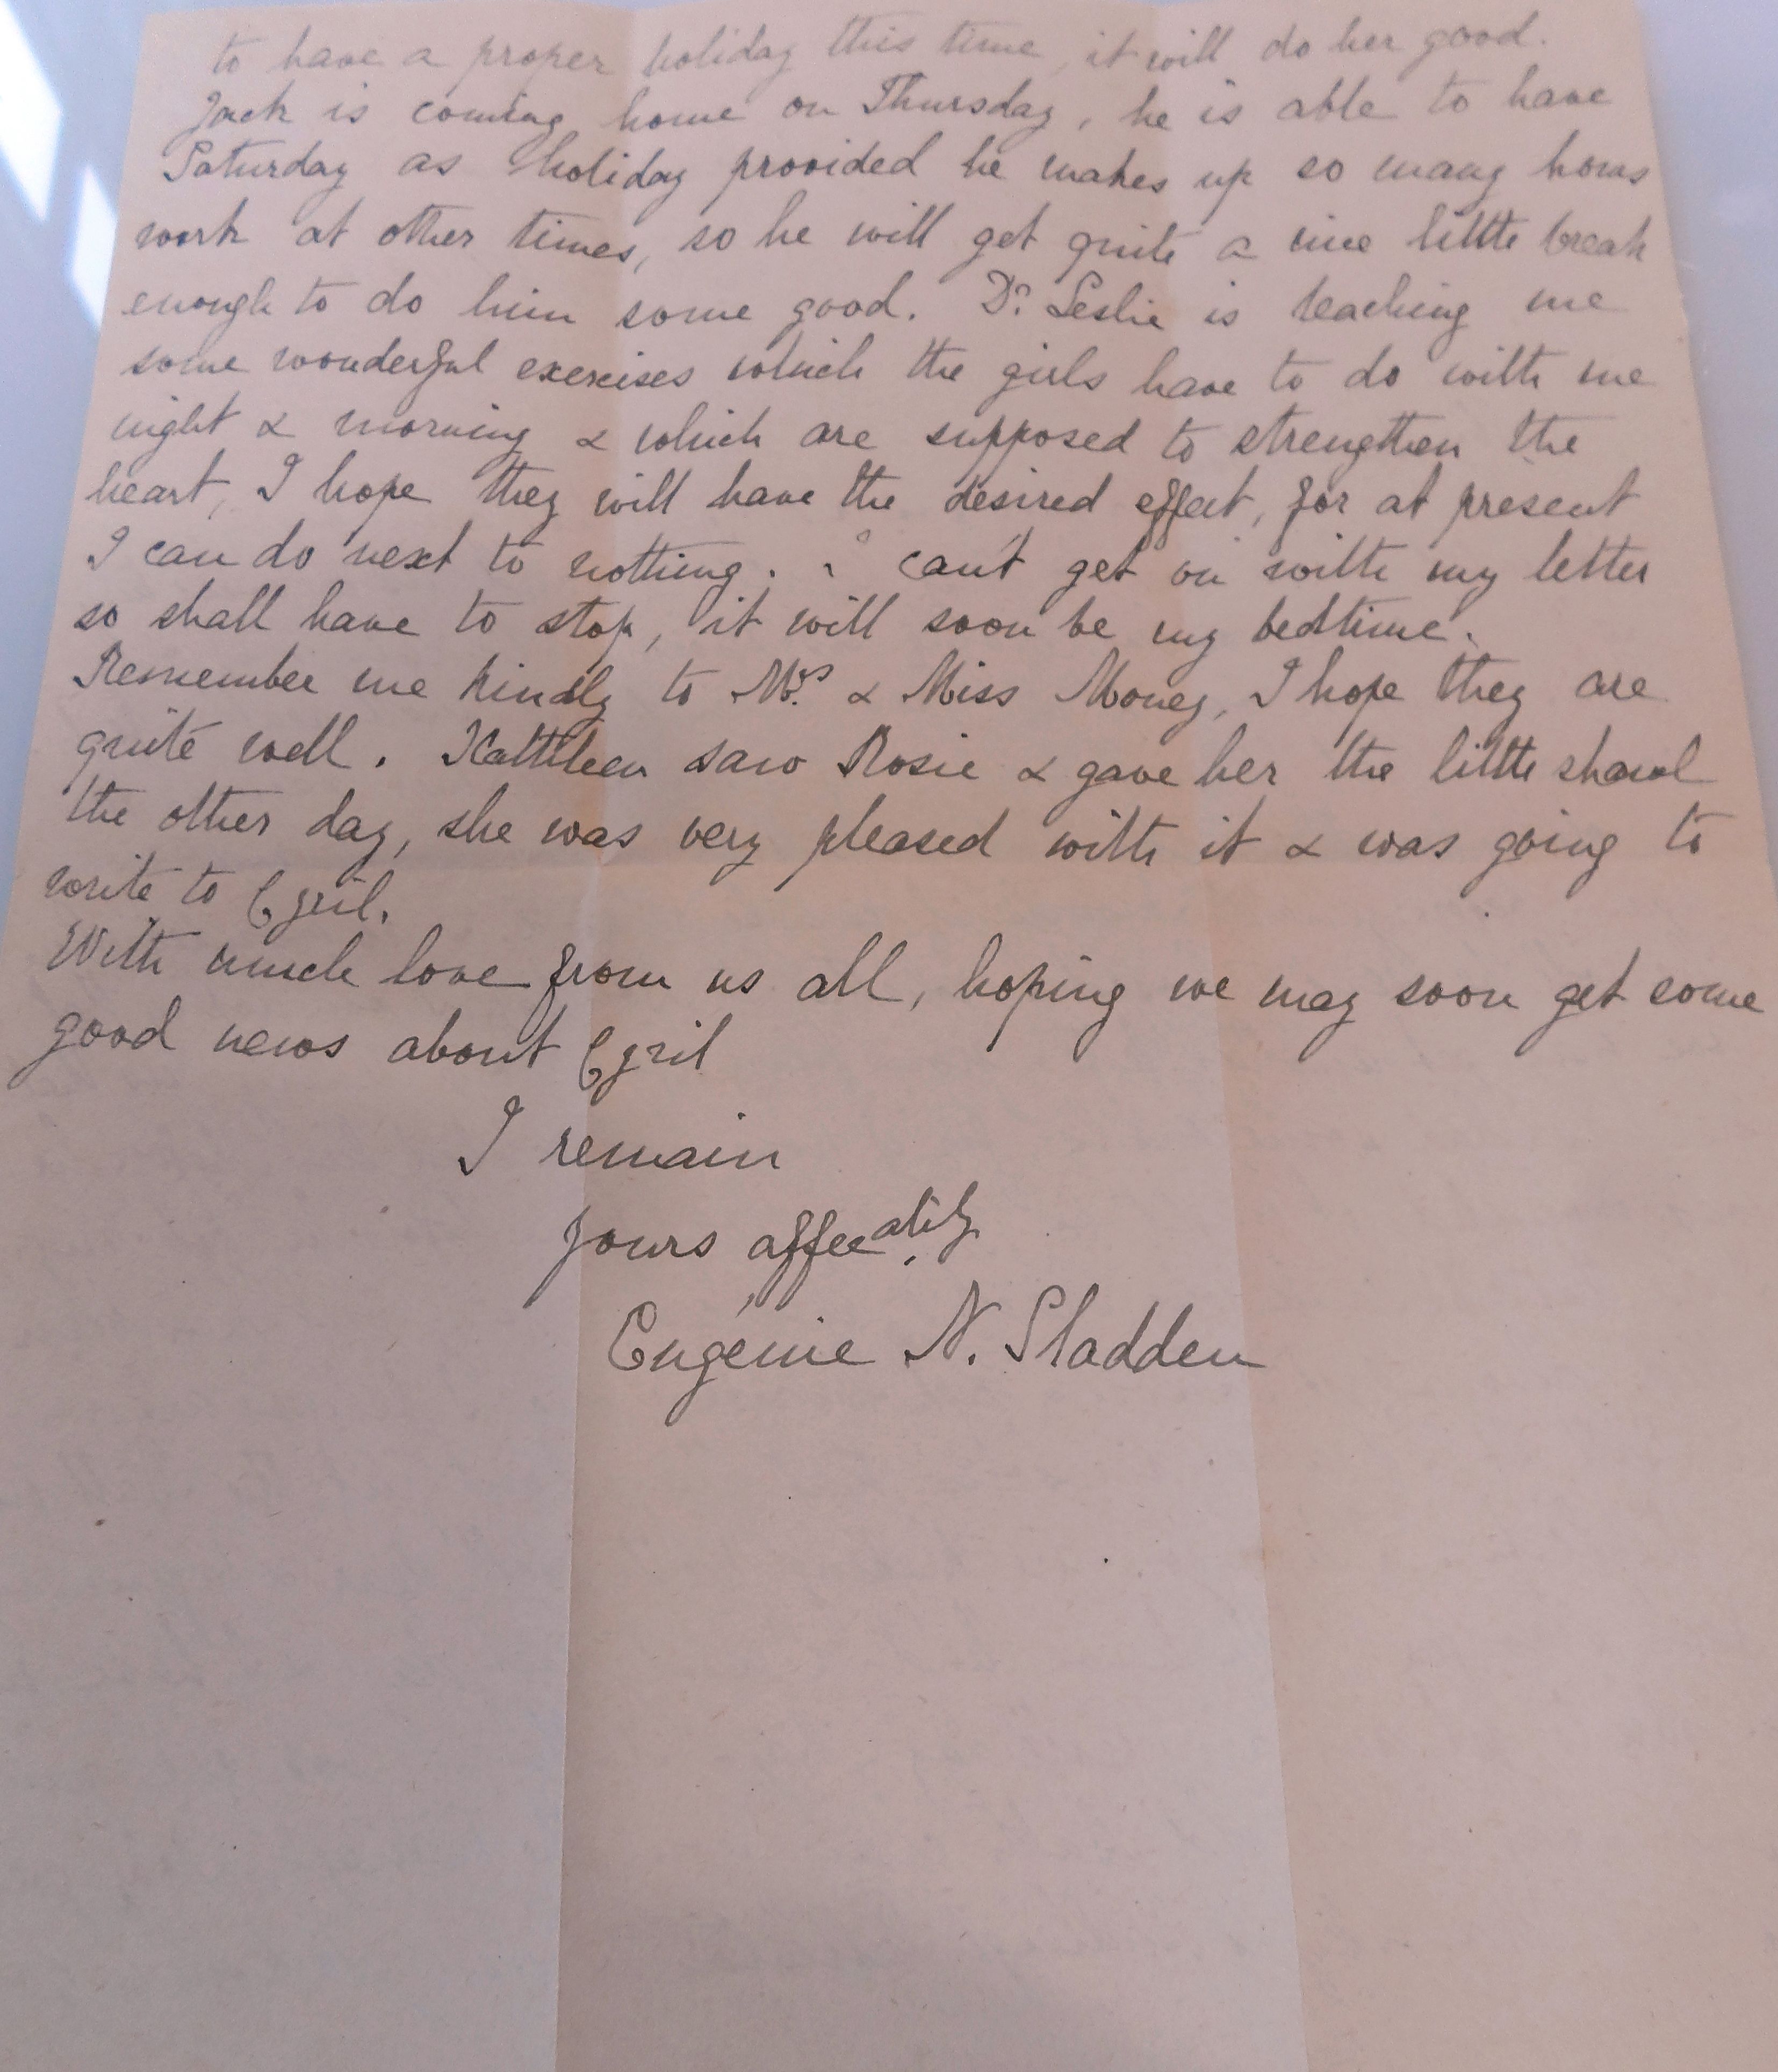 to have a proper holiday this time, it will do her good.
Jack is coming home on Thursday, he is able to have
Saturday as holiday provided he makes up so many hours
work at other times, so he will get quite a nice little break
enough to do him some good. Dr. Leslie is teaching me
some wonderful exercises which the girls have to do with me
night & morning & which are supposed to strengthen the
heart, I hope they will have the desired effect, for at present
I can do next to nothing. I can't get on with my letter
so shall have to stop, it will soon be my bedtime.
Remember me kindly to Mrs. & Miss Money, I hope they are
quite well. Kathleen saw Rosie & gave her the little shawl
the other day, she was very pleased with it & was going to
write to Cyril.
With much love from us all, hoping we may soon get some
good news about Cyril
I remain
Yours affecately
Eugénie N. Sladden